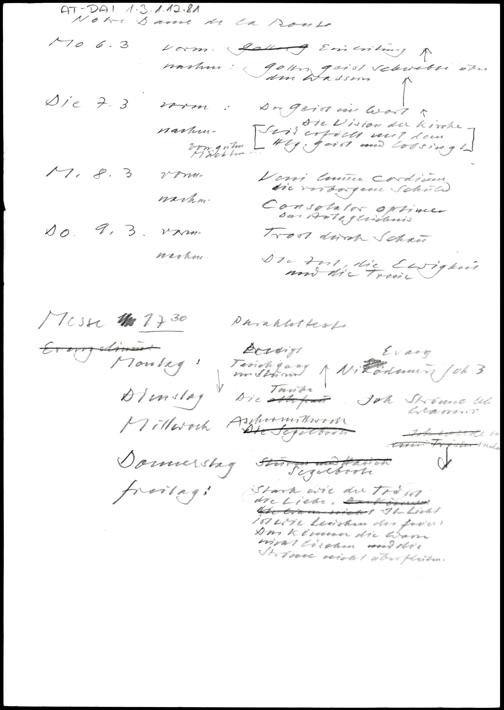 AT-DAI 1.3.1.12.81
Notre Dame de la Route
Mo 6.3 vorm. Einleitung
nachm: Gottes Geist schwebte über
den Wassern
Die 7.3 vorm: Der Geist im Wort
Die Vision der Kirche
nachm. [Seid erfüllt mit dem
Hlg. Geist und lobsinget]
von guten
Mächten
Mi. 8.3 vorm. Veni lumen Cordium,
die verborgene Schuld
nachm. Consolator optime
Das Aschegleichnis
Do. 9.3. vorm. Trost durch Schau
nachm. Die Zeit, die Ewigkeit
und die Treue
Messe 17 30 Parakletteste
Evangelium Predigt Evang
Montag: Nikodemus, Joh 3
im Sturm
Dienstag Die Taube Joh Ströme leb
Wassers
Mittwoch Aschermittwoch
Die Segelboote
Donnerstag
Segelboote
Freitag: Stark wie der Tod ist
die Liebe. Ihr Licht
ist wie Leuchten des Feuers
Das können die Wasser
nicht löschen und die
Ströme nicht überfluten.